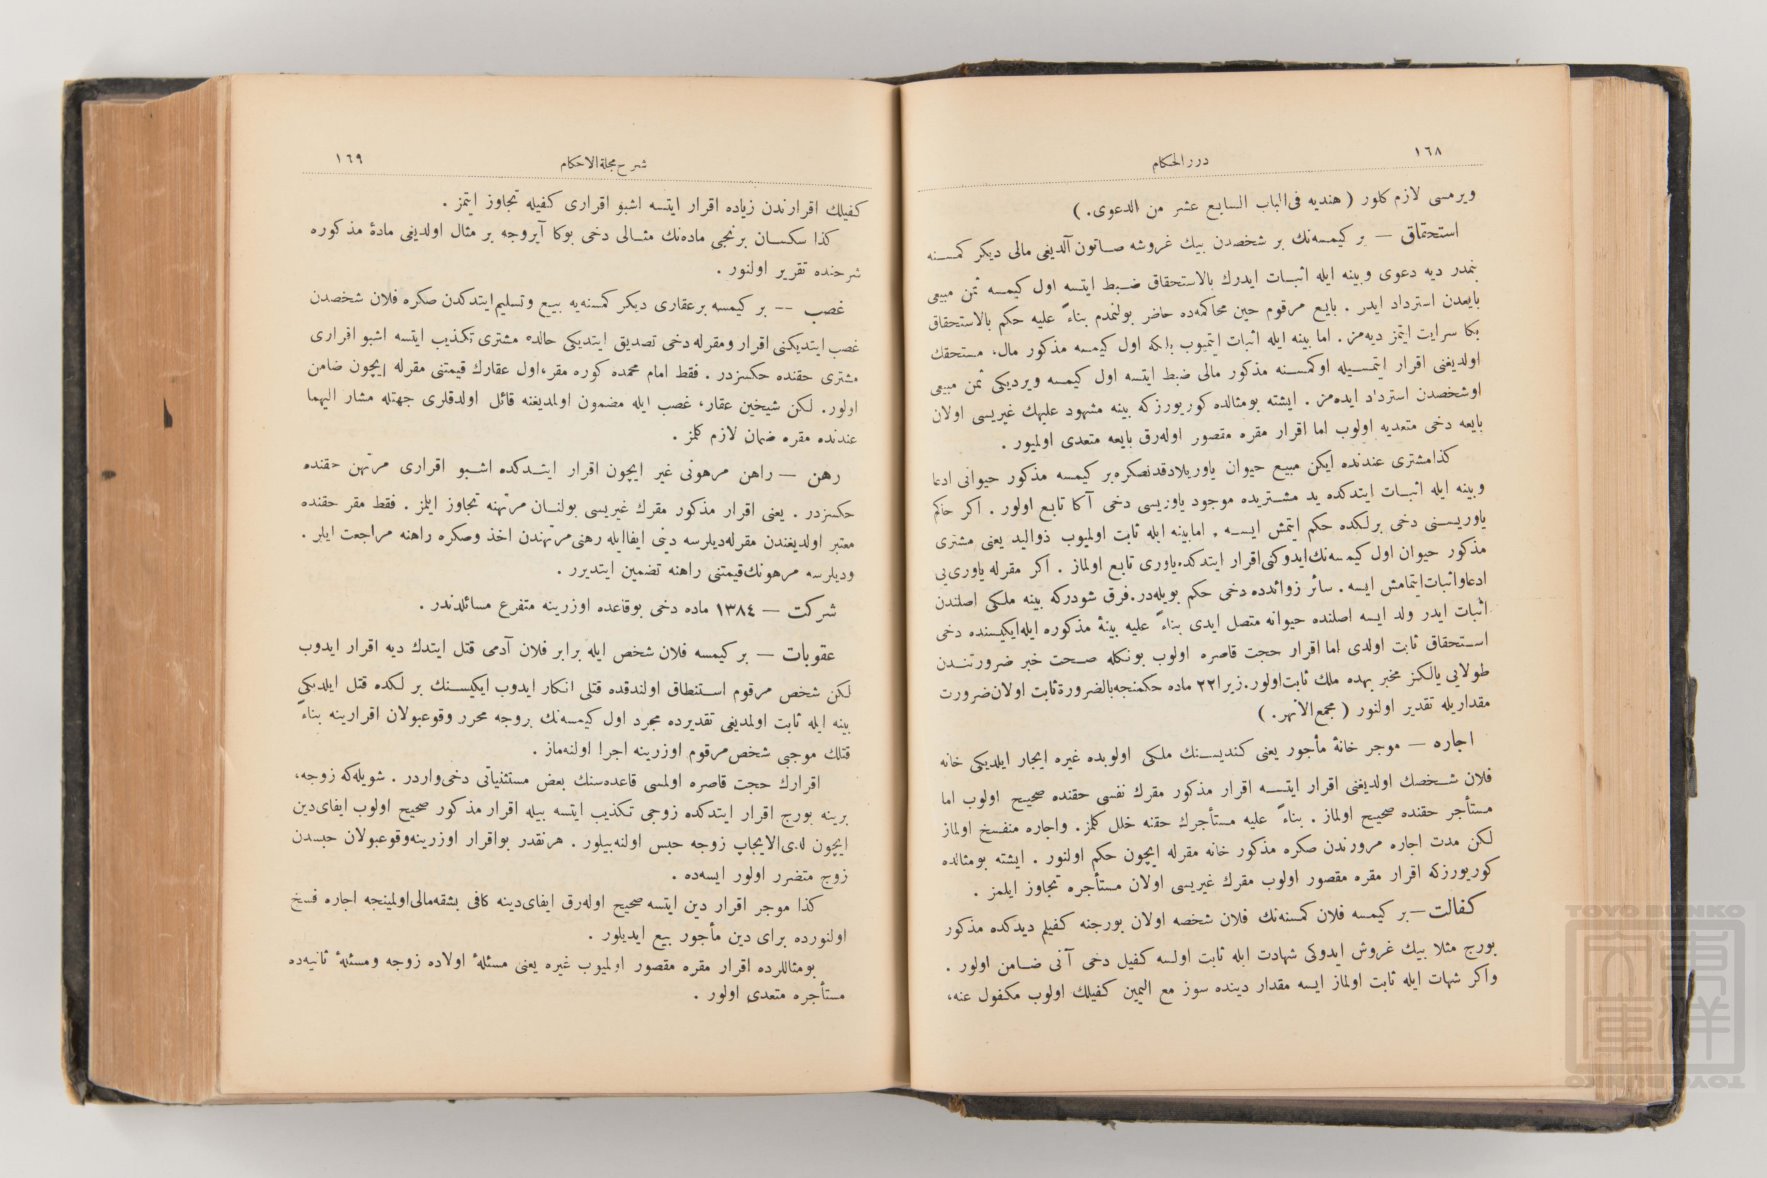 ١٦٨
درر الحكام
ويرمسى لازم كلور ( هنديه فى الباب السابع عشر من الدعوى . )
استحقاق — بر كيمسه‌نك بر شخصدن بيك غروشه صاتون آلديغى مالى ديكر كمسنه
بنمدر ديه دعوى وبينه ايله اثبات ايدرك بالاستحقاق ضبط ايتسه اول كيمسه ثمن مبيعى
بايعدن استرداد ايدر . بايع مرقوم حين محاكمه‌ده حاضر بولنمدم بناءً عليه حكم بالاستحقاق
بكا سرايت ايتمز ديه‌مز . اما بينه ايله اثبات ايتميوب بلكه اول كيمسه مذكور مال، مستحقك
اولديغنى اقرار ايتمسيله اوكمسنه مذكور مالى ضبط ايتسه اول كيمسه ويرديكى ثمن مبيعى
اوشخصدن استرداد ايده‌مز . ايشته بومثالده كوريورزكه بينه مشهود عليهك غيريسى اولان
بايعه دخى متعديه اولوب اما اقرار مقره مقصور اوله‌رق بايعه متعدى اولميور .
كذا مشترى عندنده ايكن مبيع حيوان ياوريلادقدنصكره بر كيمسه مذكور حيوانى ادعا
وبينه ايله اثبات ايتدكده يد مشتريده موجود ياوريسى دخى آكا تابع اولور . اكر حاكم
ياوريسنى دخى برلكده حكم ايتمش ايسه . امابينه ايله ثابت اولميوب ذواليد يعنى مشترى
مذكور حيوان اول كيمسه‌نك‌ايدوكنى‌اقرار ايتدكده‌ياورى تابع اولماز . اكر مقرله ياورى‌يى
ادعاواثبات‌ايتمامش ايسه . سائر زوائدده دخى حكم بويله‌در.فرق شودركه بينه ملكى اصلندن
اثبات ايدر ولد ايسه اصلنده حيوانه متصل ايدى بناءً عليه بينۀ مذكوره ايله‌ايكيسنده دخى
استحقاق ثابت اولدى اما اقرار حجت قاصره اولوب بونكله صحت خبر ضرورتندن
طولايى يالكز مخبر بهده ملك ثابت‌اولور.زيرا ٢٢ ماده حكمنجه‌بالضرورة ثابت اولان‌ضرورت
مقداريله تقدير اولنور ( مجمع‌الأنهر . )
اجاره — موجر خانۀ مأجور يعنى كنديسنك ملكى اولوبده غيره ايجار ايلديكى خانه
فلان شخصك اولديغنى اقرار ايتسه اقرار مذكور مقرك نفسى حقنده صحيح اولوب اما
مستأجر حقنده صحيح اولماز . بناءً عليه مستأجرك حقنه خلل كلمز. واجاره منفسخ اولماز
لكن مدت اجاره مرورندن صكره مذكور خانه مقرله ايچون حكم اولنور . ايشته بومثالده
كوريورزكه اقرار مقره مقصور اولوب مقرك غيريسى اولان مستأجره تجاوز ايلمز .
كفالت—بر كيمسه فلان كمسنه‌نك فلان شخصه اولان بورجنه كفيلم ديدكده مذكور
بورج مثلا بيك غروش ايدوكى شهادت ايله ثابت اولسه كفيل دخى آنى ضامن اولور .
واكر شهات ايله ثابت اولماز ايسه مقدار دينده سوز مع اليمين كفيلك اولوب مكفول عنه،
١٦٩
شرح مجلة الاحكام
كفيلك اقرارندن زياده اقرار ايتسه اشبو اقرارى كفيله تجاوز ايتمز .
كذا سكسان برنجى ماده‌نك مثالى دخى بوكا آيروجه بر مثال اولديغى مادۀ مذكوره
شرحنده تقرير اولنور .
غصب — بر كيمسه برعقارى ديكر كمسنه‌يه بيع وتسليم‌ايتدكدن صكره فلان شخصدن
غصب ايتديكنى اقرار ومقرله دخى تصديق ايتديكى حالده مشترى تكذيب ايتسه اشبو اقرارى
مشترى حقنده حكمسزدر . فقط امام محمده كوره مقر،اول عقارك قيمتنى مقرله ايچون ضامن
اولور. لكن شيخين عقار، غصب ايله مضمون اولمديغنه قائل اولدقلرى جهتله مشار اليهما
عندنده مقره ضمان لازم كلمز .
رهن — راهن مرهونى غير ايچون اقرار ايتدكده اشبو اقرارى مرتهن حقنده
حكمسزدر . يعنى اقرار مذكور مقرك غيريسى بولنان مرتهنه تجاوز ايلمز . فقط مقر حقنده
معتبر اولديغندن مقرله‌ديلرسه دينى ايفاايله رهنى‌مرتهندن اخذ وصكره راهنه مراجعت ايلر .
وديلرسه مرهونك‌قيمتنى راهنه تضمين ايتديرر .
شركت — ١٣٨٤ ماده دخى بوقاعده اوزرينه متفرع مسائلدندر .
عقوبات — بر كيمسه فلان شخص ايله برابر فلان آدمى قتل ايتدك ديه اقرار ايدوب
لكن شخص مرقوم استنطاق اولندقده قتلى انكار ايدوب ايكيسنك بر لكده قتل ايلديكى
بينه ايله ثابت اولمديغى تقديرده مجرد اول كيمسه‌نك بروجه محرر وقوعبولان اقرارينه بناءً
قتلك موجبى شخص‌مرقوم اوزرينه اجرا اولنه‌ماز .
اقرارك حجت قاصره اولمسى قاعده‌سنك بعض مستثنياتى دخى‌واردر . شويله‌كه زوجه،
برينه بورج اقرار ايتدكده زوجى تكذيب ايتسه بيله اقرار مذكور صحيح اولوب ايفاى‌دين
ايچون لدى‌الايجاب زوجه حبس اولنه‌بيلور . هرنقدر بواقرار اوزرينه‌وقوعبولان حبسدن
زوج متضرر اولور ايسه‌ده .
كذا موجر اقرار دين ايتسه صحيح اوله‌رق ايفاى‌دينه كافى بشقه‌مالى‌اولمينجه اجاره فسخ
اولنورده براى دين مأجور بيع ايديلور .
بومثاللرده اقرار مقره مقصور اولميوب غيره يعنى مسئلۀ اولاده زوجه ومسئلۀ ثانيه‌ده
مستأجره متعدى اولور .
TOYO BUNKO